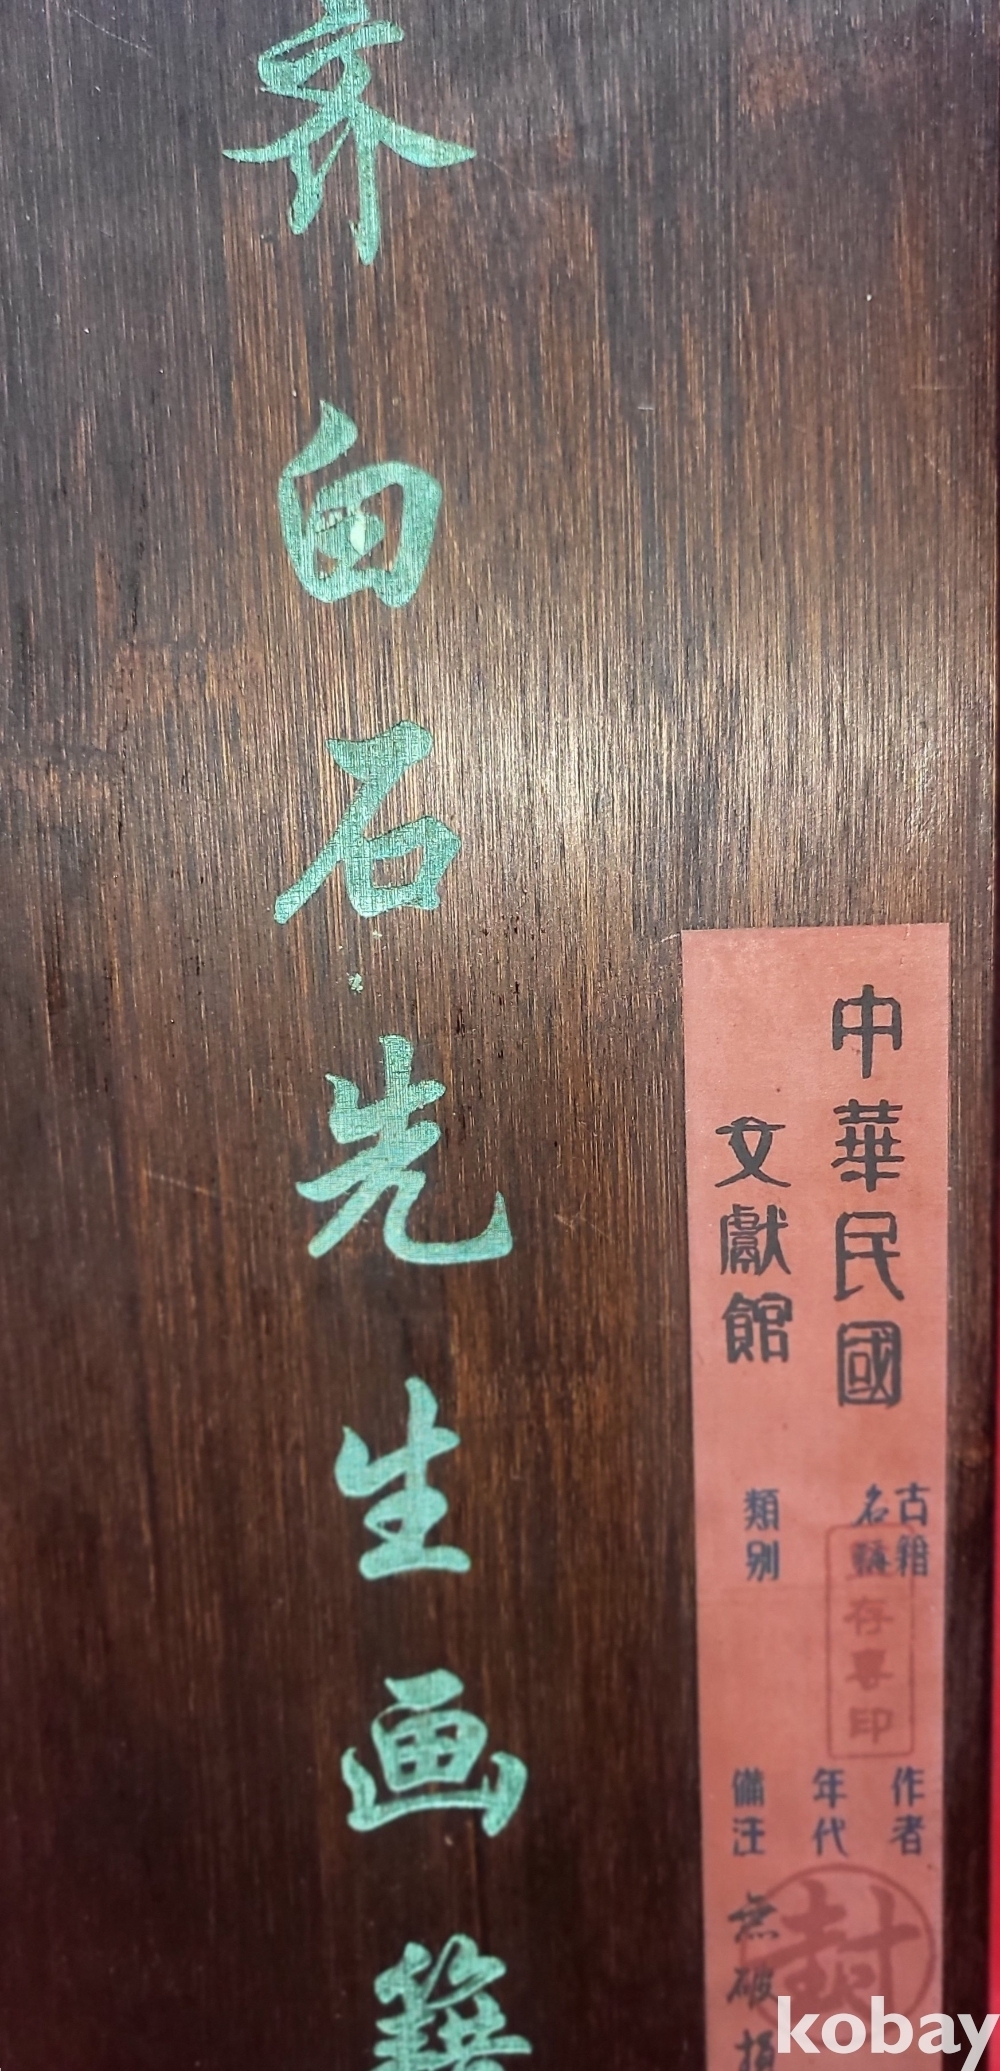 齐白石先生画籍
中華民國
文獻館
古籍
名稱
類别
存專印
作者
年代
備注
無破損
封
kobay